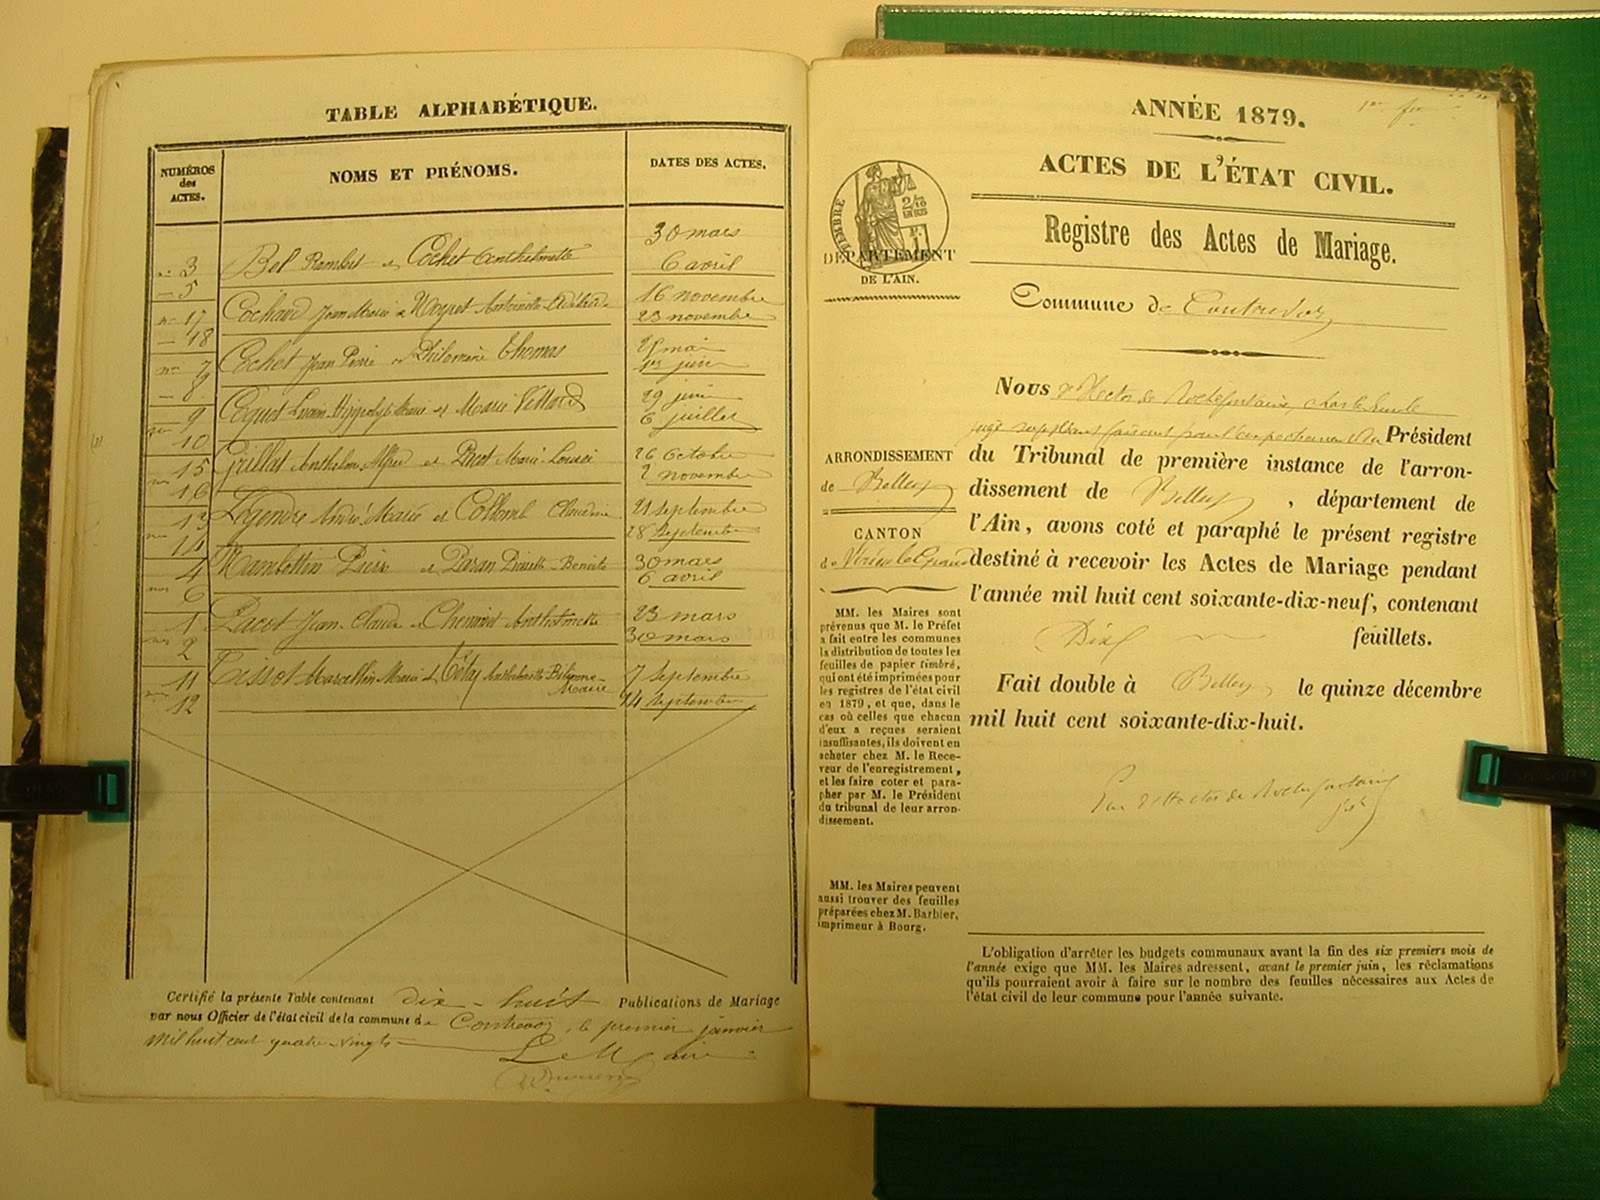 TABLE ALPHABÉTIQUE.
NUMÉROS
des
ACTES.
NOMS ET PRÉNOMS.
DATES DES ACTES.
30 mars
3 Bel Rambert et Cochet Anthelmette 6 avril
5
16 novembre
17 Cochard Jean Marie et Antoinette
23 novembre
18
Cochet Jean Pierre et Philomène Thomas
7 mai
8 1er juin
9 29 juin
Marie et Marie
10 6 juillet
15 Grillat Anthelme Alfred et Marie Louise 26 Octobre
16 2 novembre
13 Legendre André Marie et Collomb Claudine 21 Septembre
14 28 Septembre
4 Pierre et 30 mars
6 6 avril
1 Pacot Jean Claude et Anthelmette 23 mars
2 30 mars
11 Tissot Marcellin Marie et 7 Septembre
Marie
12 14 Septembre
Certifié la présente Table contenant dix-huit Publications de Mariage
par nous Officier de l'état civil de la commune de Contrevoz, le premier janvier
mil huit cent quatre-vingts
Le Maire
ANNÉE 1879.
ACTES DE L'ÉTAT CIVIL.
TIMBRE
2/10
EN SUS
DÉPARTEMENT
DE L'AIN.
Registre des Actes de Mariage.
Commune de Contrevoz
Nous Hector de Rochefontaine
juge suppléant faisant pour l'empêchement du Président
du Tribunal de première instance de l'arron-
dissement de Belley, département de
l'Ain, avons coté et paraphé le présent registre
destiné à recevoir les Actes de Mariage pendant
l'année mil huit cent soixante-dix-neuf, contenant
Dix feuillets.
Fait double à Belley le quinze décembre
mil huit cent soixante-dix-huit.
Hector de Rochefontaine
ARRONDISSEMENT
de Belley
CANTON
de Virieu le Grand
MM. les Maires sont
prévenus que M. le Préfet
a fait entre les communes
la distribution de toutes les
feuilles de papier timbré,
qui ont été imprimées pour
les registres de l'état civil
en 1879, et que, dans le
cas où celles que chacun
d'eux a reçues seraient
insuffisantes, ils doivent en
acheter chez M. le Rece-
veur de l'enregistrement,
et les faire coter et para-
pher par M. le Président
du tribunal de leur arron-
dissement.
MM. les Maires peuvent
aussi trouver des feuilles
préparées chez M. Barbier,
imprimeur à Bourg.
L'obligation d'arrêter les budgets communaux avant la fin des six premiers mois de
l'année exige que MM. les Maires adressent, avant le premier juin, les réclamations
qu'ils pourraient avoir à faire sur le nombre des feuilles nécessaires aux Actes de
l'état civil de leur commune pour l'année suivante.